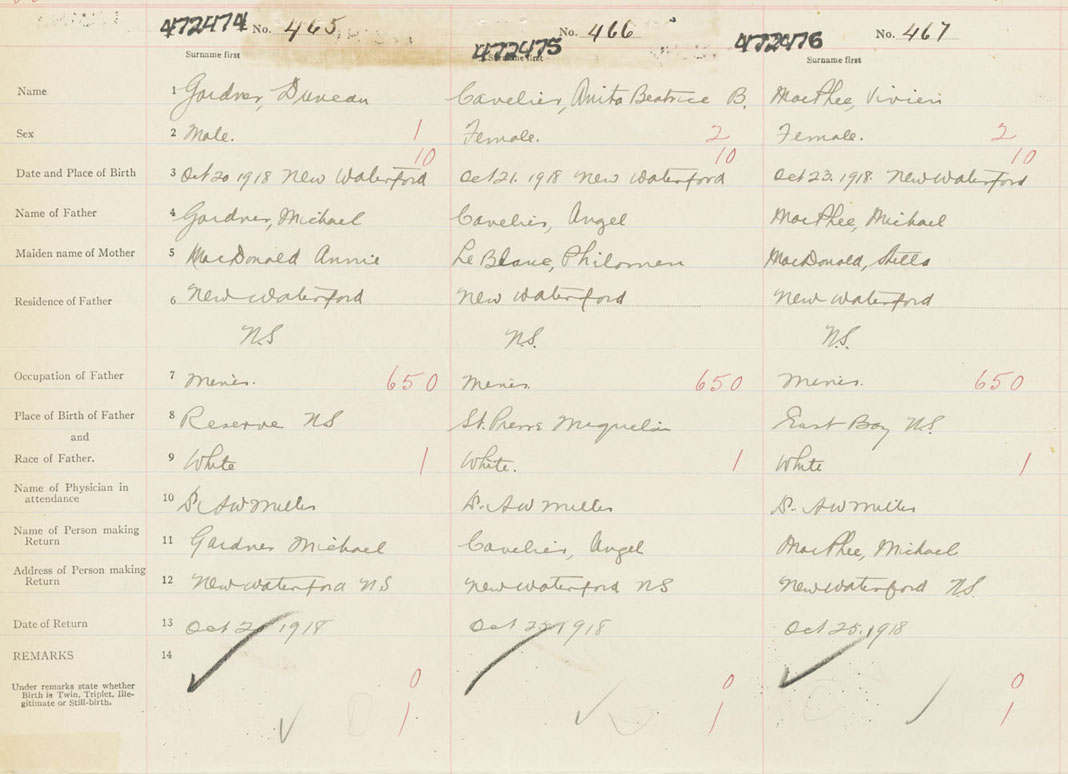 472474 No. 465 472475 No. 466 472476 No. 467
Surname first Surname first Surname first
Name 1 Gardner, Duncan Cavelier, Anita Beatrice B. MacPhee, Vivien
Sex 2 Male. 1 Female. 2 Female. 2
10 10 10
Date and Place of Birth 3 Oct 20 1918 New Waterford Oct 21. 1918 New Waterford Oct 23. 1918. New Waterford
Name of Father 4 Gardner, Michael Cavelier, Angel MacPhee, Michael
Maiden name of Mother 5 MacDonald Annie LeBlanc, Philomen MacDonald, Stella
Residence of Father 6 New Waterford New Waterford New Waterford
N.S N.S. N.S.
Occupation of Father 7 Miner. 650 Miner. 650 Miner. 650
Place of Birth of Father 8 Reserve NS St. Pierre Miquelin East Bay N.S.
and
Race of Father. 9 White 1 White. 1 White 1
Name of Physician in
attendance 10 Dr. A W Miller Dr. A W Miller Dr. A W Miller
Name of Person making
Return 11 Gardner Michael Cavelier, Angel MacPhee, Michael
Address of Person making
Return 12 New Waterford N S New Waterford N S New Waterford N.S
Date of Return 13 Oct 1918 Oct 25. 1918 Oct 25. 1918
REMARKS 14
Under remarks state whether
Birth is Twin, Triplet, Ille-
gitimate or Still-birth.
0 0 0
1 1 1